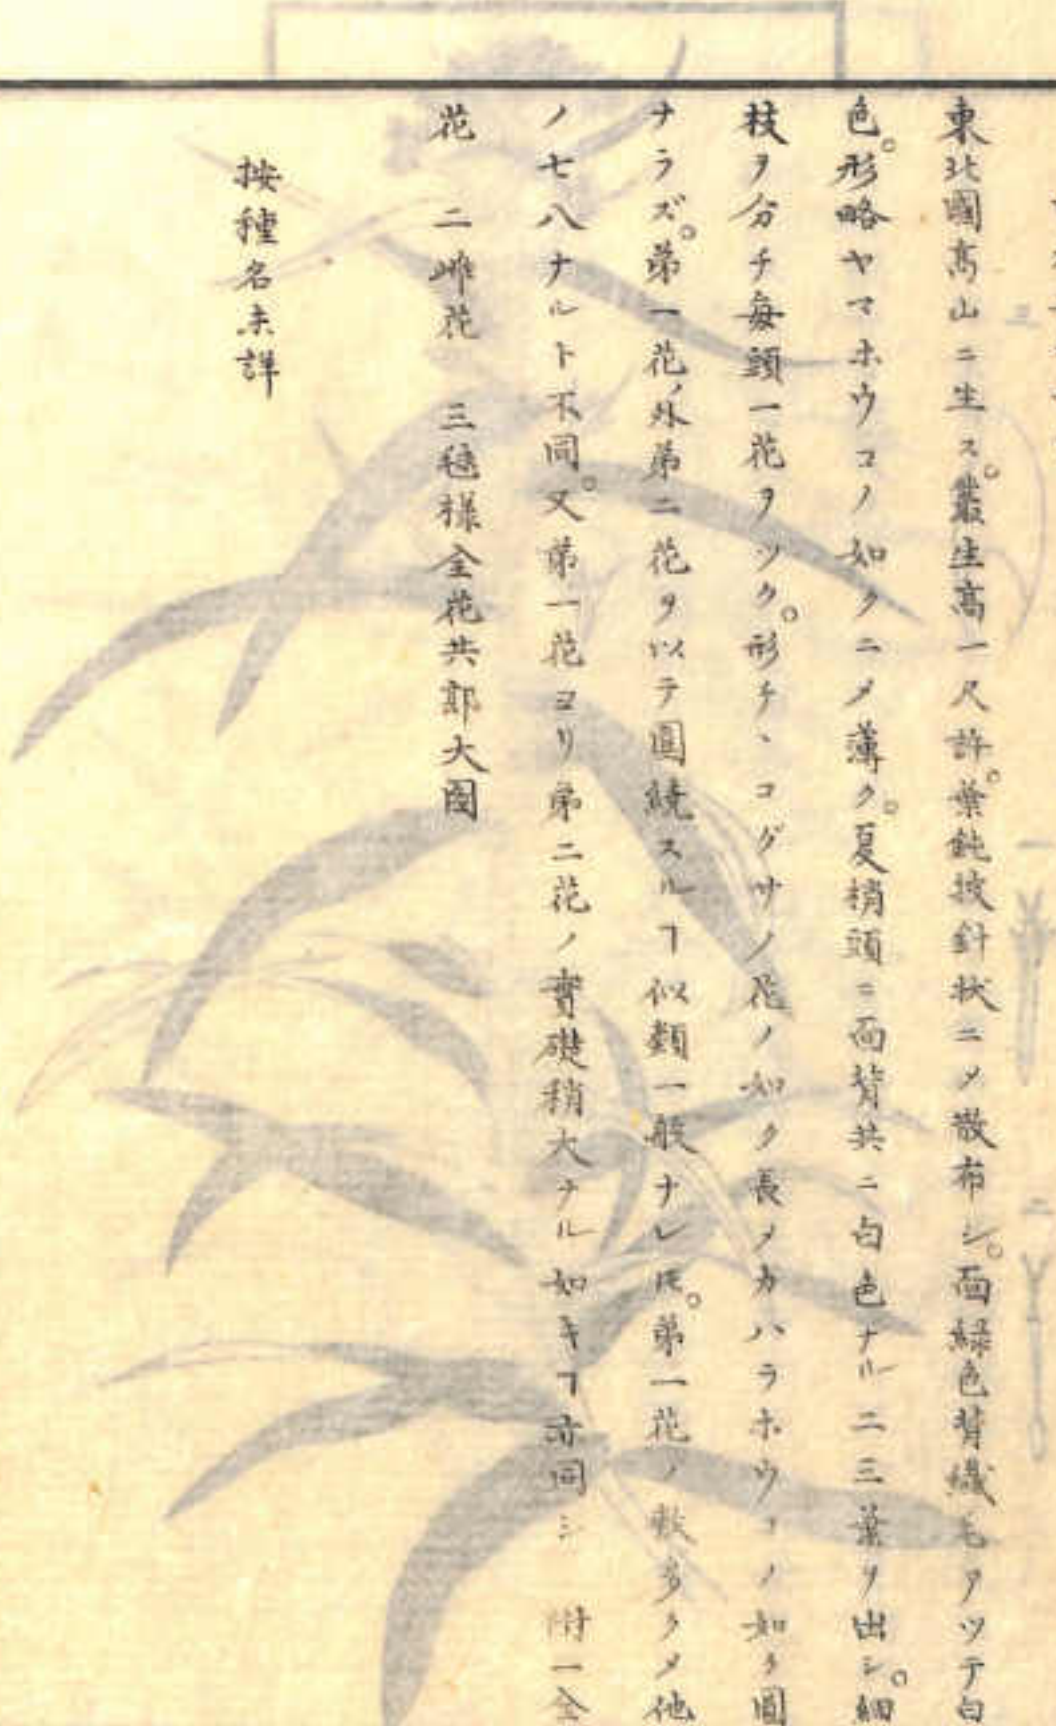 東北國高山ニ生ス。叢生高一尺許。葉鈍披針状ニメ散布シ。面緑色背纎毛アツテ白
色。形略ヤマホウコノ如クニメ薄ク。夏梢頭ニ面背共ニ白色ナル二三葉ヲ出シ。細
枝ヲ分チ毎頭一花ヲツク。形チヽコグサノ花ノ如ク長メカハラホウコノ如ク圓
ナラズ。第一花ノ外第二花ヲ以テ圍繞スルヿ似類一般ナレ𪜈。第一花ノ數多クメ他
ノ七八ナルト不同。又第一花ヨリ第二花ノ實礎稍大ナル如キヿ亦同シ 附一全
花 二 花 三 様全花共郭大圖
按種名未詳
三
一
二